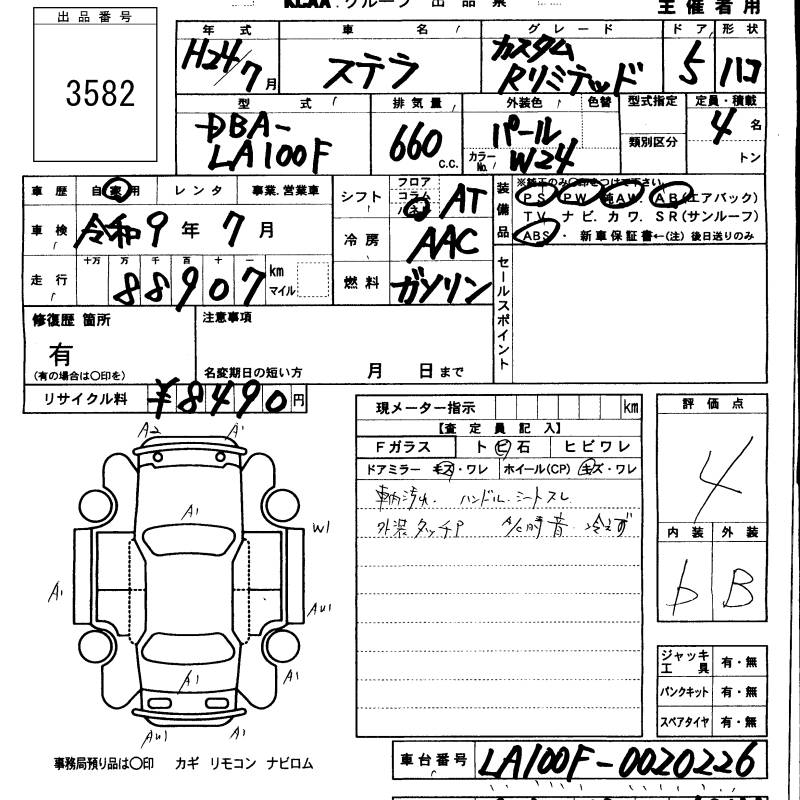 KCAA グループ 出品票 主催者用
出品番号
3582
年式 車名 グレード ドア 形状
H24/7月 ステラ カスタム Rリミテッド 5 ハコ
型式 排気量 外装色 色替 型式指定 定員・積載
DBA-LA100F 660 c.c. パール カラーNo. W24 類別区分 4名
トン
車歴 自家用 レンタ 事業.営業車
車検 令和9年7月
走行 十万 万 千 百 十 一
88907 km マイル
シフト フロア コラム パネル AT
冷房 AAC
燃料 ガソリン
装備品 ※純正のみ○印をつけて下さい
PS PW 純AW. AB(エアバック)
TV ナビ.カワ.SR(サンルーフ)
ABS・新車保証書←(注)後日送りのみ
セールスポイント
修復歴 箇所
有
(有の場合は○印を)
注意事項
名変期日の短い方 月 日まで
リサイクル料 ¥8490円
現メーター指示 km
【査定員記入】
Fガラス ト ビ 石 ヒビワレ
ドアミラー キズ・ワレ ホイール(CP) キズ・ワレ
車内汚れ. ハンドル.シートスレ
外装タッチP A/C時音 冷えず
評価点
4
内装 外装
b B
A2 A1
A1
W1
A1
AU1
A1
A1
A1
AU1 A1
ジャッキ工具 有・無
パンクキット 有・無
スペアタイヤ 有・無
事務局預り品は○印 カギ リモコン ナビロム
車台番号 LA100F-0020226